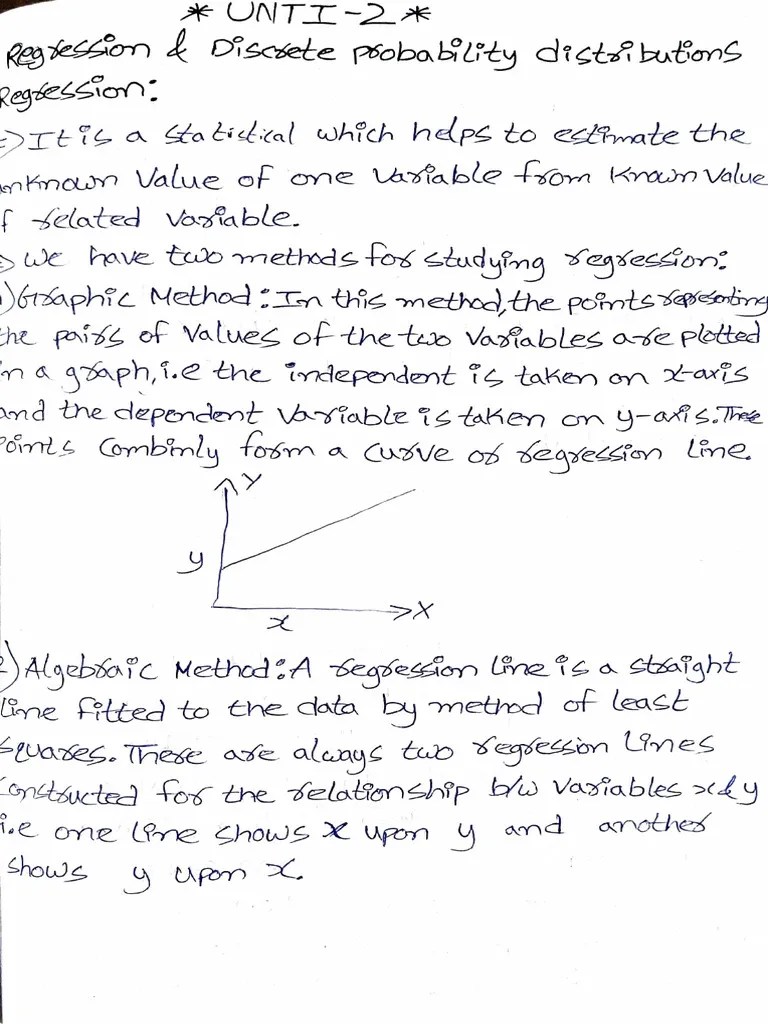 * UNTI-2 *
Regression & Discrete probability distributions
Regression:
=> It is a statistical which helps to estimate the
unknown value of one variable from known value
of related variable.
=> We have two methods for studying regression:
1) Graphic Method: In this method, the points representing
the pairs of values of the two variables are plotted
in a graph, i.e the independent is taken on x-axis
and the dependent variable is taken on y-axis. These
points combinly form a curve or regression line.
Y
y
X
x
2) Algebraic Method: A regression line is a straight
line fitted to the data by method of least
squares. There are always two regression lines
constructed for the relationship b/w variables x & y
i.e one line shows x upon y and another
shows y upon x.